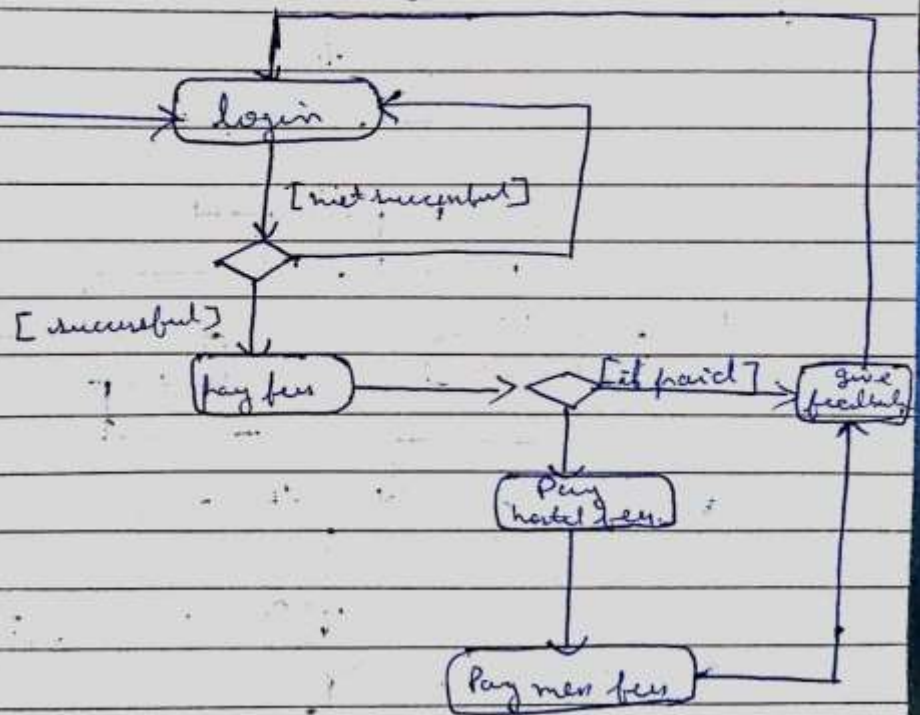 login
[not successful]
[successful]
pay fees
[if paid]
give
feedback
Pay
hostel fees.
Pay mess fees